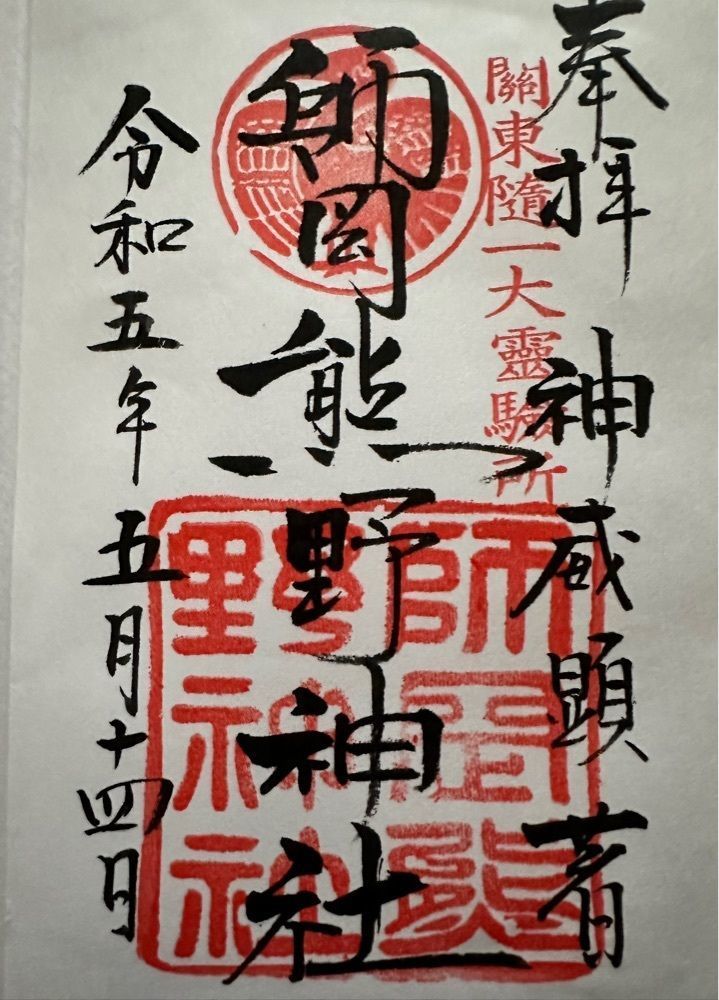 奉拝 神威顕著
關東随一大靈驗所
師岡熊野神社
令和五年五月十四日
師岡熊
野神社